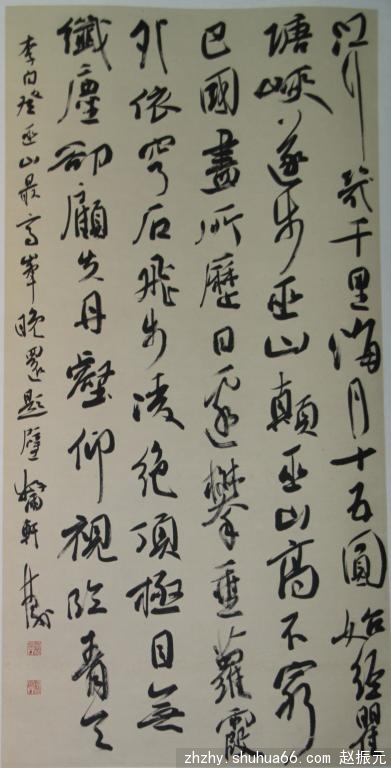 江行幾千里海月十五圓始經瞿
塘峽遂步巫山顛巫山高不窮
巴國盡所歷日邊攀垂蘿霞
外依穹石飛步凌絕頂極目無
纖塵卻顧失丹壑仰視臨青天
李白登巫山最高峯晚還題壁 軒
zhzhy.shuhua66.com 赵振元